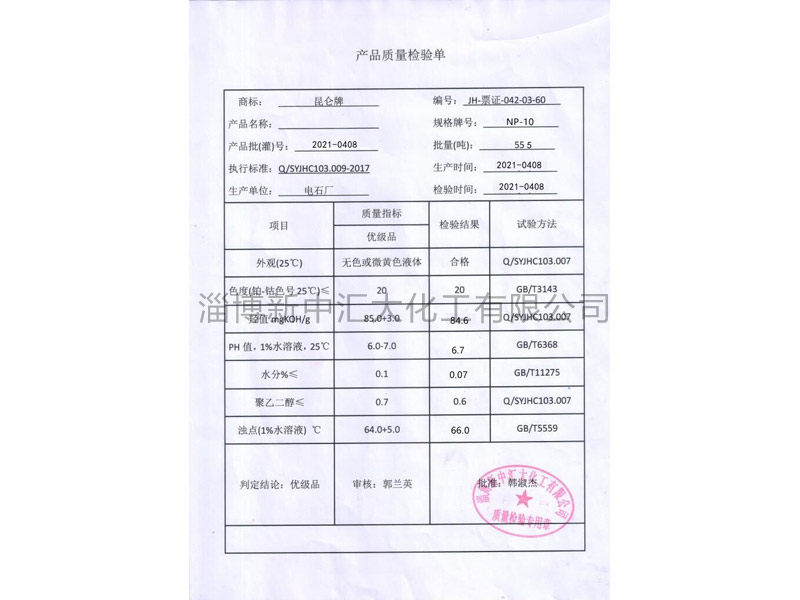 产品质量检验单
商标： 昆仑牌 编号： JH-票证-042-03-60
产品名称： 规格牌号： NP-10
产品批(灌)号： 2021-0408 批量(吨)： 55 5
执行标准： Q/SYJHC103.009-2017 生产时间： 2021-0408
生产单位： 电石厂 检验时间： 2021-0408
项目 质量指标 检验结果 试验方法
优级品
外观(25℃) 无色或微黄色液体 合格 Q/SYJHC103.007
色度(铂-钴色号 25℃)≤ 20 20 GB/T3143
淄博新中汇大化工有限公司
羟值 mgKOH/g 85.0+3.0 84.6 Q/SYJHC103.007
PH 值，1%水溶液，25℃ 6.0-7.0 6.7 GB/T6368
水分%≤ 0.1 0.07 GB/T11275
聚乙二醇≤ 0.7 0.6 Q/SYJHC103.007
浊点(1%水溶液) ℃ 64.0+5.0 66.0 GB/T5559
判定结论：优级品 审核：郭兰英 批准：韩淑杰
淄博新中汇大化工有限公司
质量检验专用章